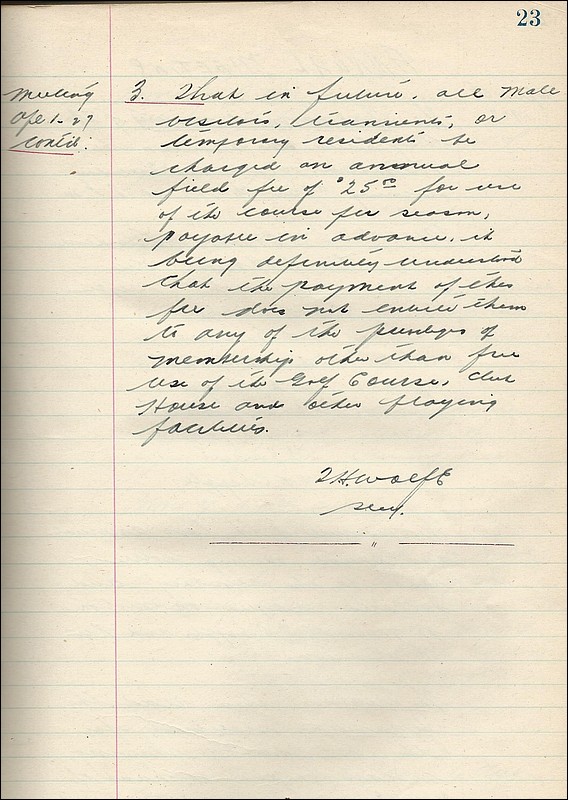 23
Meeting
Apl 1-27
contd.
3. That in future, all male
visitors, transients, or
temporary residents be
charged an annual
field fee of $25.00 for use
of the course per season,
payable in advance, it
being definitely understood
that the payment of this
fee does not entitle them
to any of the privileges of
membership other than free
use of the Golf Course, Club
House and other playing
facilities.
H. Wolfe
Secy.